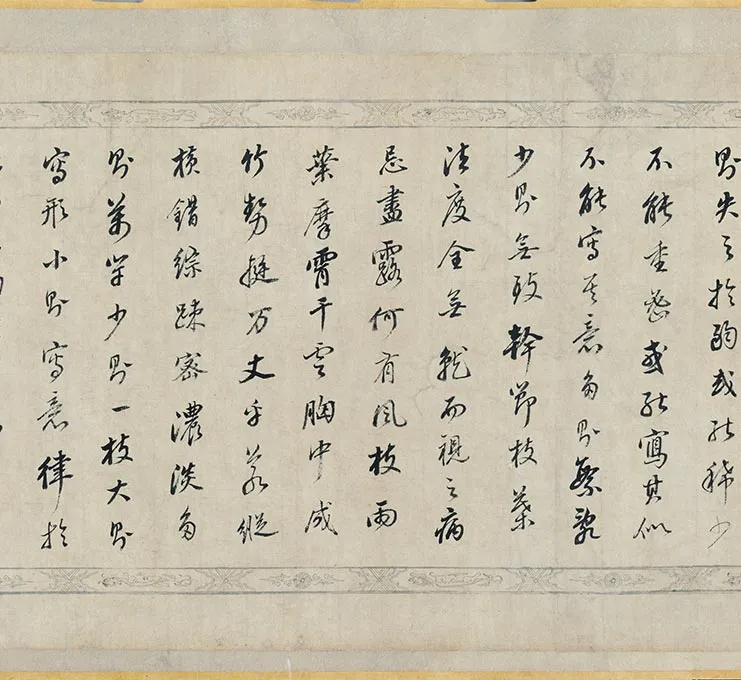 則失之於或能稀少
不能或能寫其似
不能寫其意多則繁亂
少則無致幹節枝葉
法度全無就而視之病
忌盡露何有風枝雨
葉摩霄干雲胸中成
竹勢挺万丈乎若縱
橫錯綜踈密濃淡多
則萬竿少則一枝大則
寫形小則寫意律於